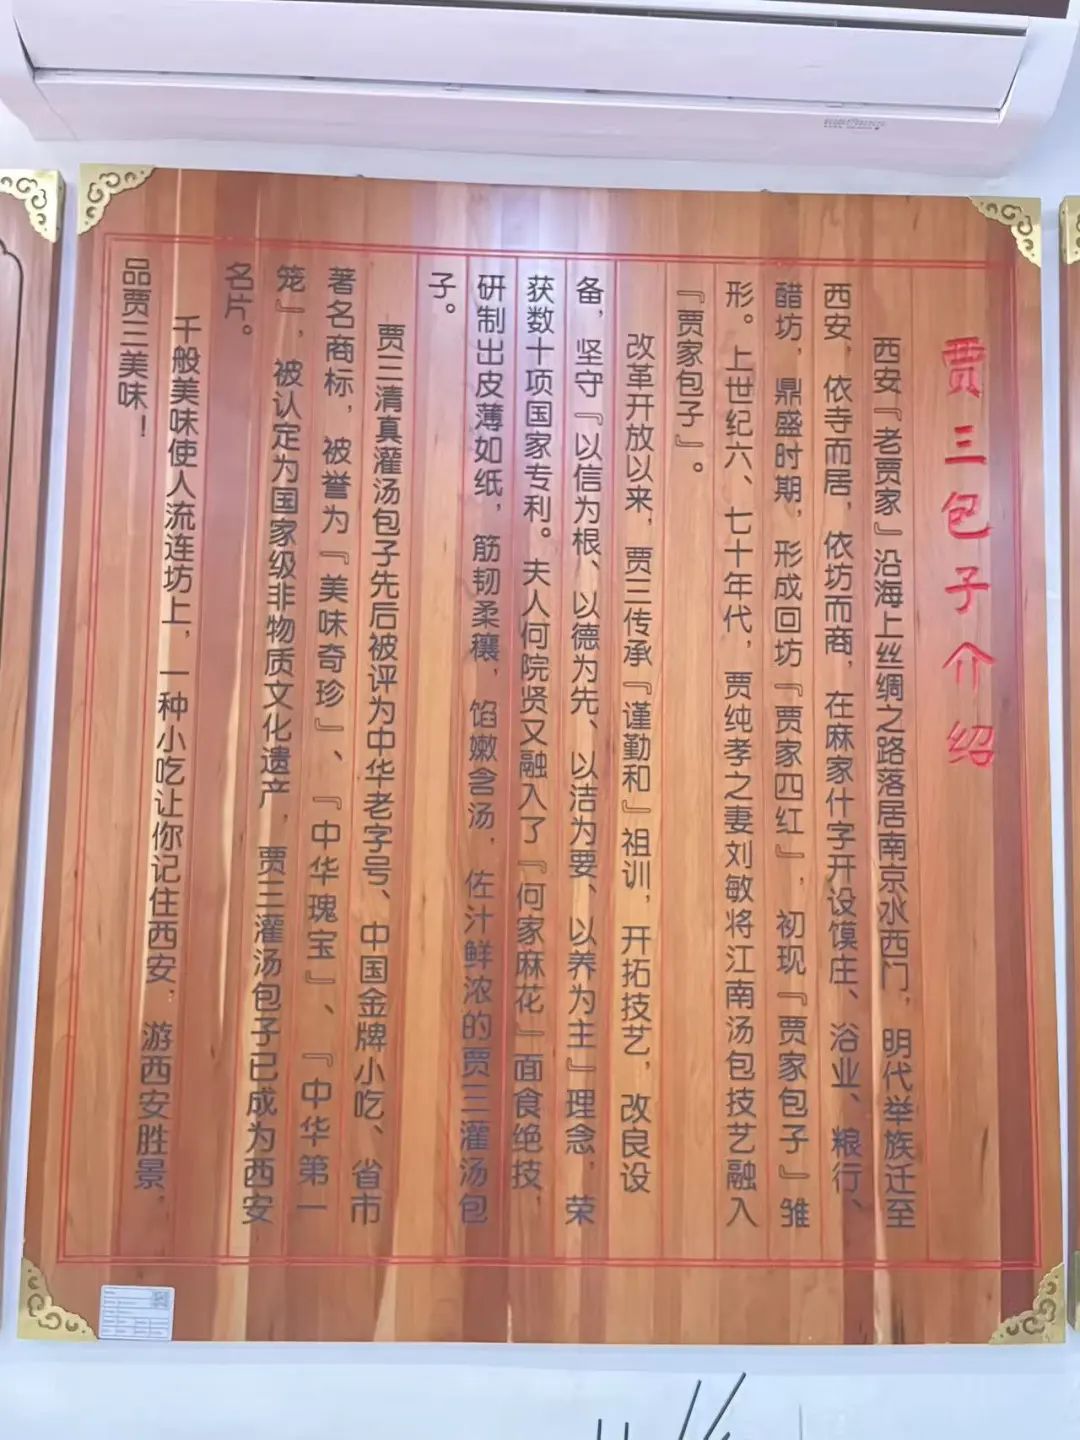 贾三包子介绍
西安『老贾家』沿海上丝绸之路落居南京水西门，明代举族迁至
西安，依寺而居，依坊而商，在麻家什字开设馍庄、浴业、粮行、
醋坊，鼎盛时期，形成回坊『贾家四红』，初现『贾家包子』雏
形。上世纪六、七十年代，贾纯孝之妻刘敏将江南汤包技艺融入
『贾家包子』。
改革开放以来，贾三传承『谨勤和』祖训，开拓技艺，改良设
备，坚守『以信为根、以德为先、以洁为要、以养为主』理念，荣
获数十项国家专利。夫人何院贤又融入了『何家麻花』面食绝技，
研制出皮薄如纸，筋韧柔穰，馅嫩含汤，佐汁鲜浓的贾三灌汤包
子。
贾三清真灌汤包子先后被评为中华老字号、中国金牌小吃、省市
著名商标，被誉为『美味奇珍』、『中华瑰宝』、『中华第一
笼』，被认定为国家级非物质文化遗产，贾三灌汤包子已成为西安
名片。
千般美味使人流连坊上，一种小吃让你记住西安，游西安胜景，
品贾三美味！